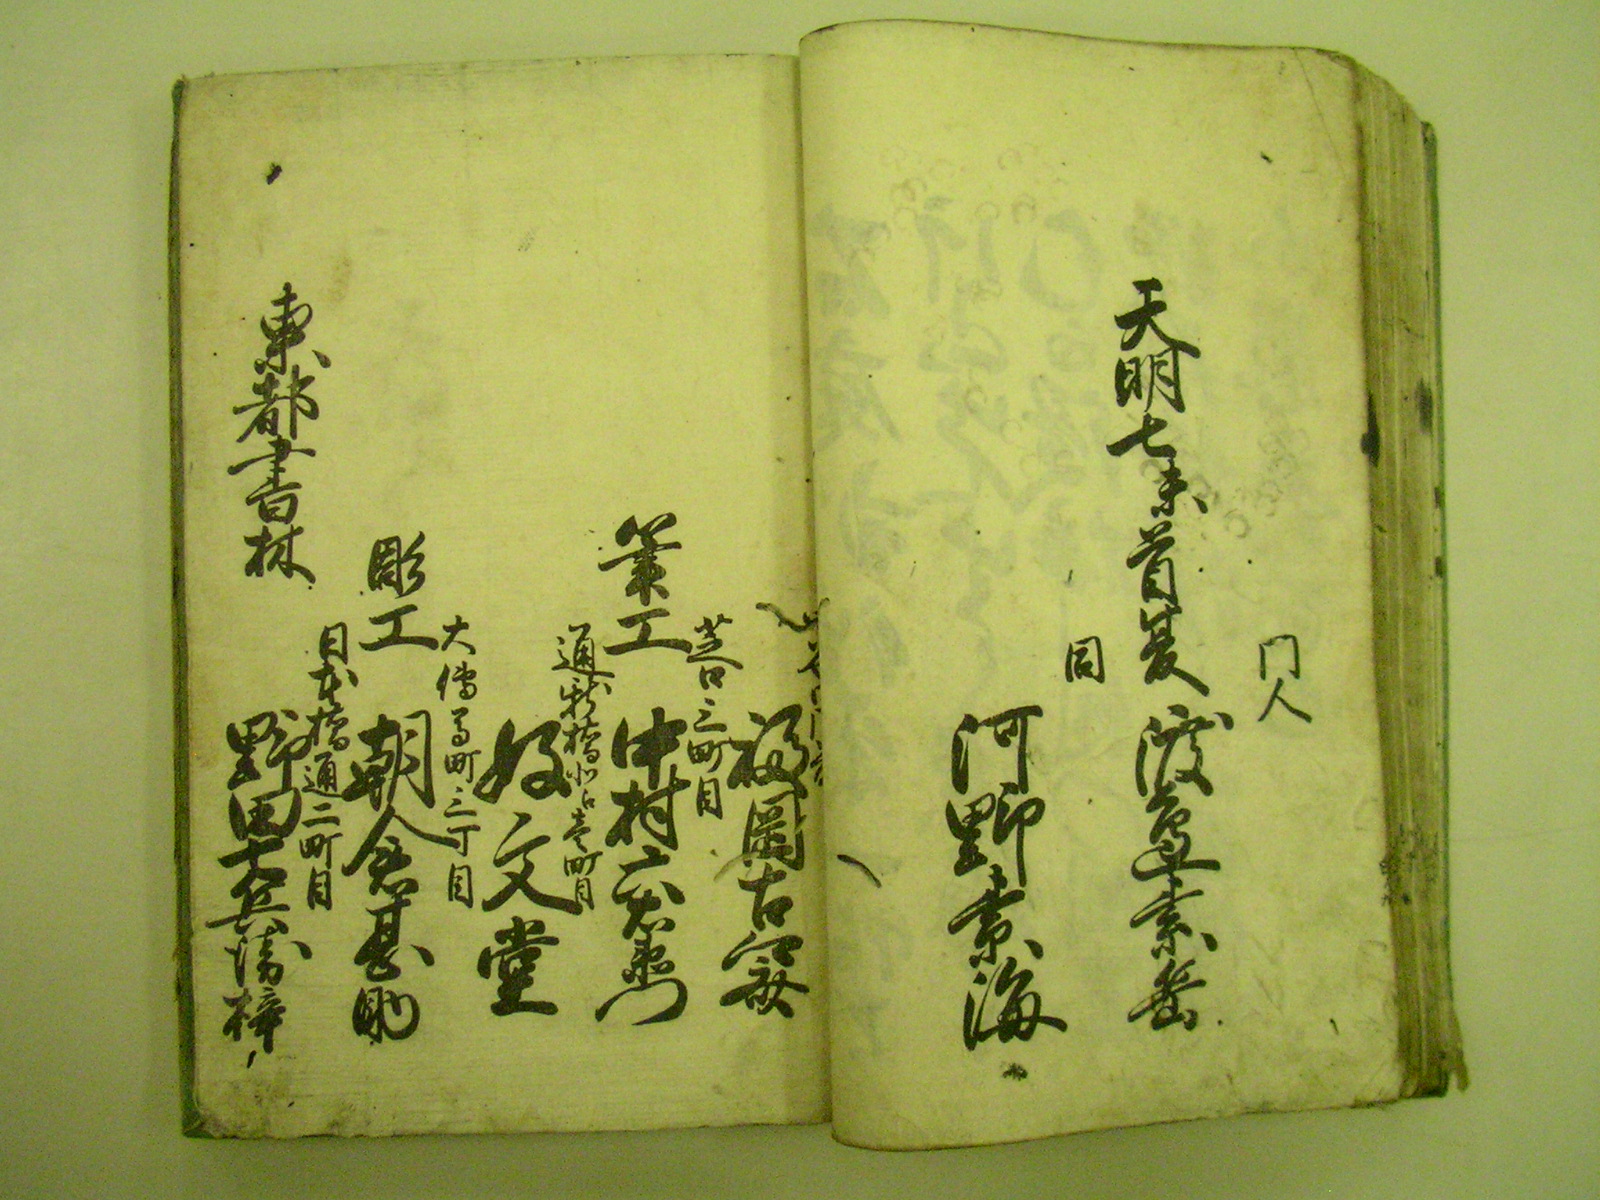 門人
天明七未首夏 渡邊素岳
同
河野素海
福岡古
芝口三町目
筆工 中村六右衛門
通新橋出雲町目
好文堂
大傳馬町三丁目
彫工 朝倉甚助
日本橋通二町目
東都書林 野田七兵衛梓